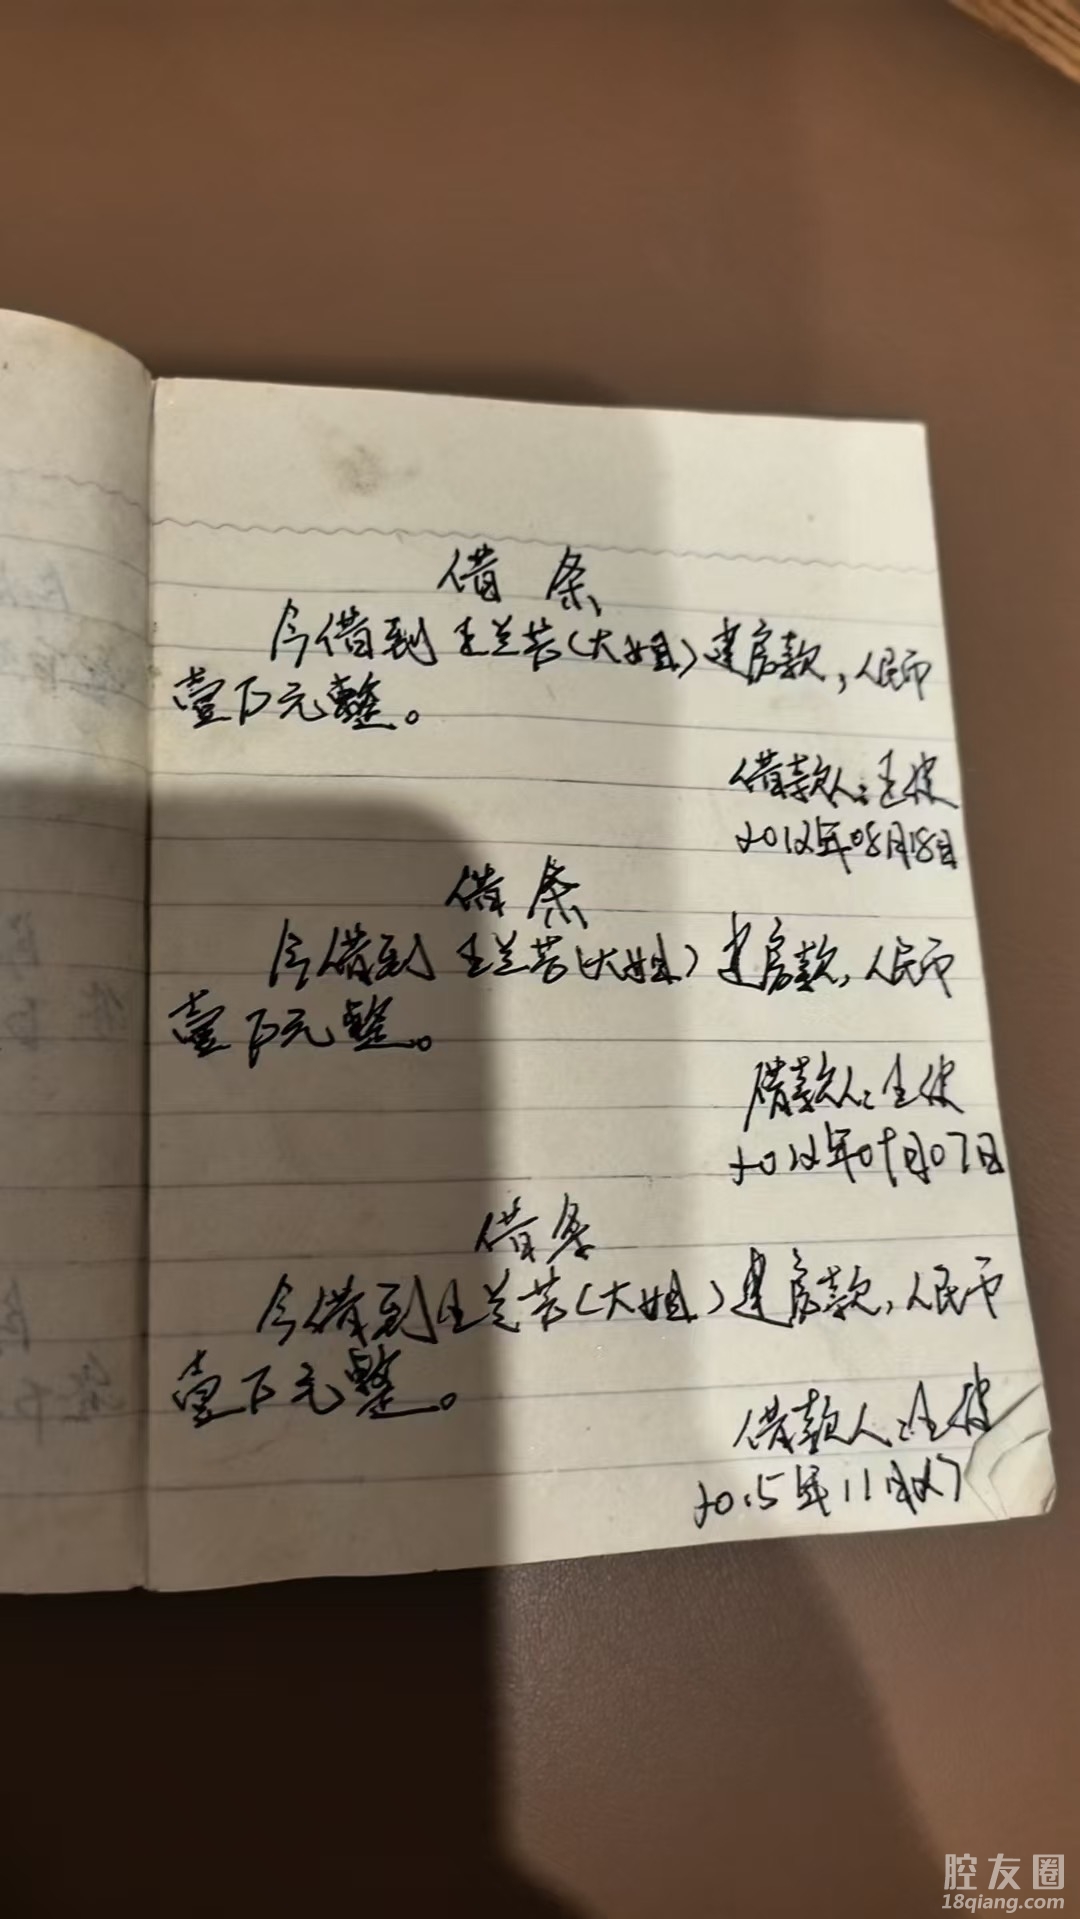 借条
今借到王兰芸(大姐)建房款,人民币
壹万元整。
借款人:王
2012年08月18日
借条
今借到王兰芸(大姐)建房款,人民币
壹万元整。
借款人:王
2012年09月07日
借条
今借到王兰芸(大姐)建房款,人民币
壹万元整。
借款人:王
2015年11月27
腔友圈
18qiang.com